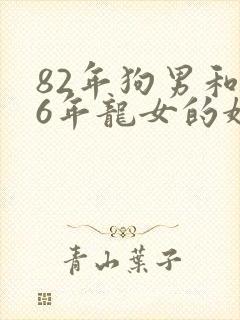 82年狗男和
6年龍女的
青山葉子